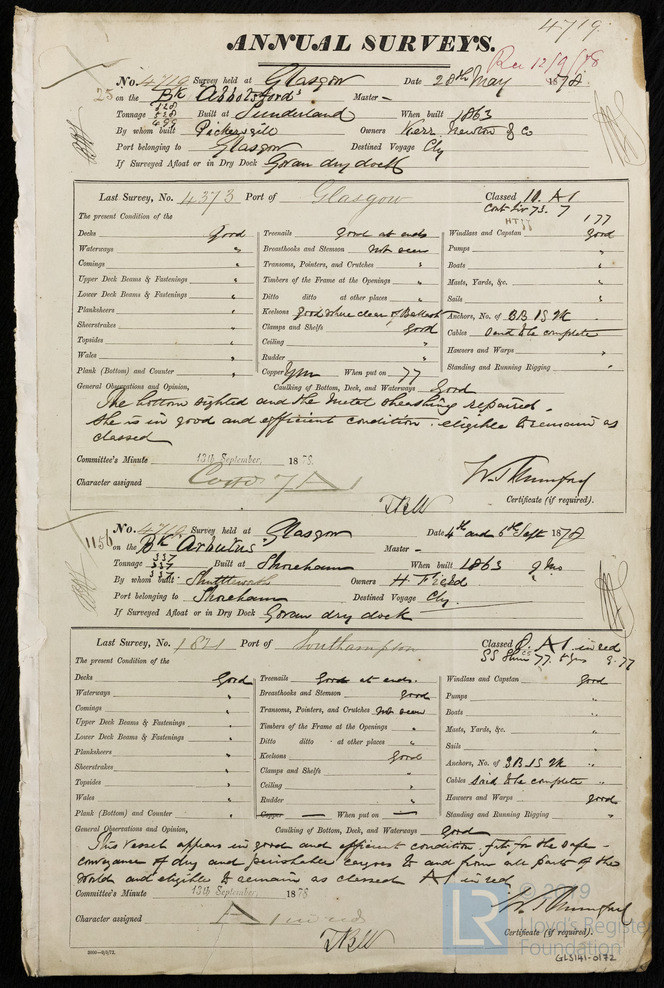 4719.
ANNUAL SURVEYS.
Rec 12/9/78
No. 4719 Survey held at Glasgow Date 28th May 1878
25 on the Bk Abbotsford Master –
Tonnage 528 538 499 Built at Sunderland When built 1863
By whom built Pickersgill Owners Kerr Newton & Co
Port belonging to Glasgow Destined Voyage Cly
If Surveyed Afloat or in Dry Dock Govan dry dock
Last Survey, No. 4373 Port of Glasgow Classed 10. A1
Cont 73. 7
The present Condition of the 1 77
Decks Good Treenails good at ends Windlass and Capstan good
Waterways " Breasthooks and Stemson Not seen Pumps "
Comings " Transoms, Pointers, and Crutches " Boats "
Upper Deck Beams & Fastenings " Timbers of the Frame at the Openings " Masts, Yards, &c. "
Lower Deck Beams & Fastenings " Ditto ditto at other places " Sails "
Planksheers " Keelsons good where clear of Ballast Anchors, No. of 3B 1S 2K
Sheerstrakes " Clamps and Shelfs Good Cables said to be complete
Topsides " Ceiling " Hawsers and Warps "
Wales " Rudder " Standing and Running Rigging "
Plank (Bottom) and Counter " Copper Ym When put on 77
General Observations and Opinion, Caulking of Bottom, Deck, and Waterways Good
The bottom sighted and the metal sheathing repaired.
She is in good and efficient condition. eligible to remain as
classed
Committee's Minute 13th September, 1878.
Character assigned Cont 7 A1
W. J. Mumford
Certificate (if required).
No. 4719 Survey held at Glasgow Date 4th and 6th Sept 1878
1156 on the Bk "Arbutus" Master –
Tonnage 337 337 337 Built at Shoreham When built 1863 9 Mo
By whom built Shuttleworth Owners H Field
Port belonging to Shoreham Destined Voyage Cly.
If Surveyed Afloat or in Dry Dock Govan dry dock
Last Survey, No. 1821 Port of Southampton Classed A1 in red
SS Shm 77. 5 yrs 9.77
The present Condition of the
Decks Good Treenails Good at ends. Windlass and Capstan Good
Waterways " Breasthooks and Stemson Good Pumps "
Comings " Transoms, Pointers, and Crutches Not seen Boats "
Upper Deck Beams & Fastenings " Timbers of the Frame at the Openings " Masts, Yards, &c. "
Lower Deck Beams & Fastenings " Ditto ditto at other places " Sails "
Planksheers " Keelsons Good Anchors, No. of 3B 1S 2K "
Sheerstrakes " Clamps and Shelfs " Cables said to be complete "
Topsides " Ceiling " Hawsers and Warps good
Wales " Rudder " Standing and Running Rigging "
Plank (Bottom) and Counter " Copper — When put on —
General Observations and Opinion, Caulking of Bottom, Deck, and Waterways good
This vessel appears in good and efficient condition, fit for the safe
conveyance of dry and perishable cargoes to and from all parts of the
world and eligible to remain as classed A1 in red
Committee's Minute 13th September, 1878
Character assigned A1 in red
W. J. Mumford
Certificate (if required).
2000—8/5/72.
LR © 2019
Lloyd's Register
Foundation
GLS141-0172